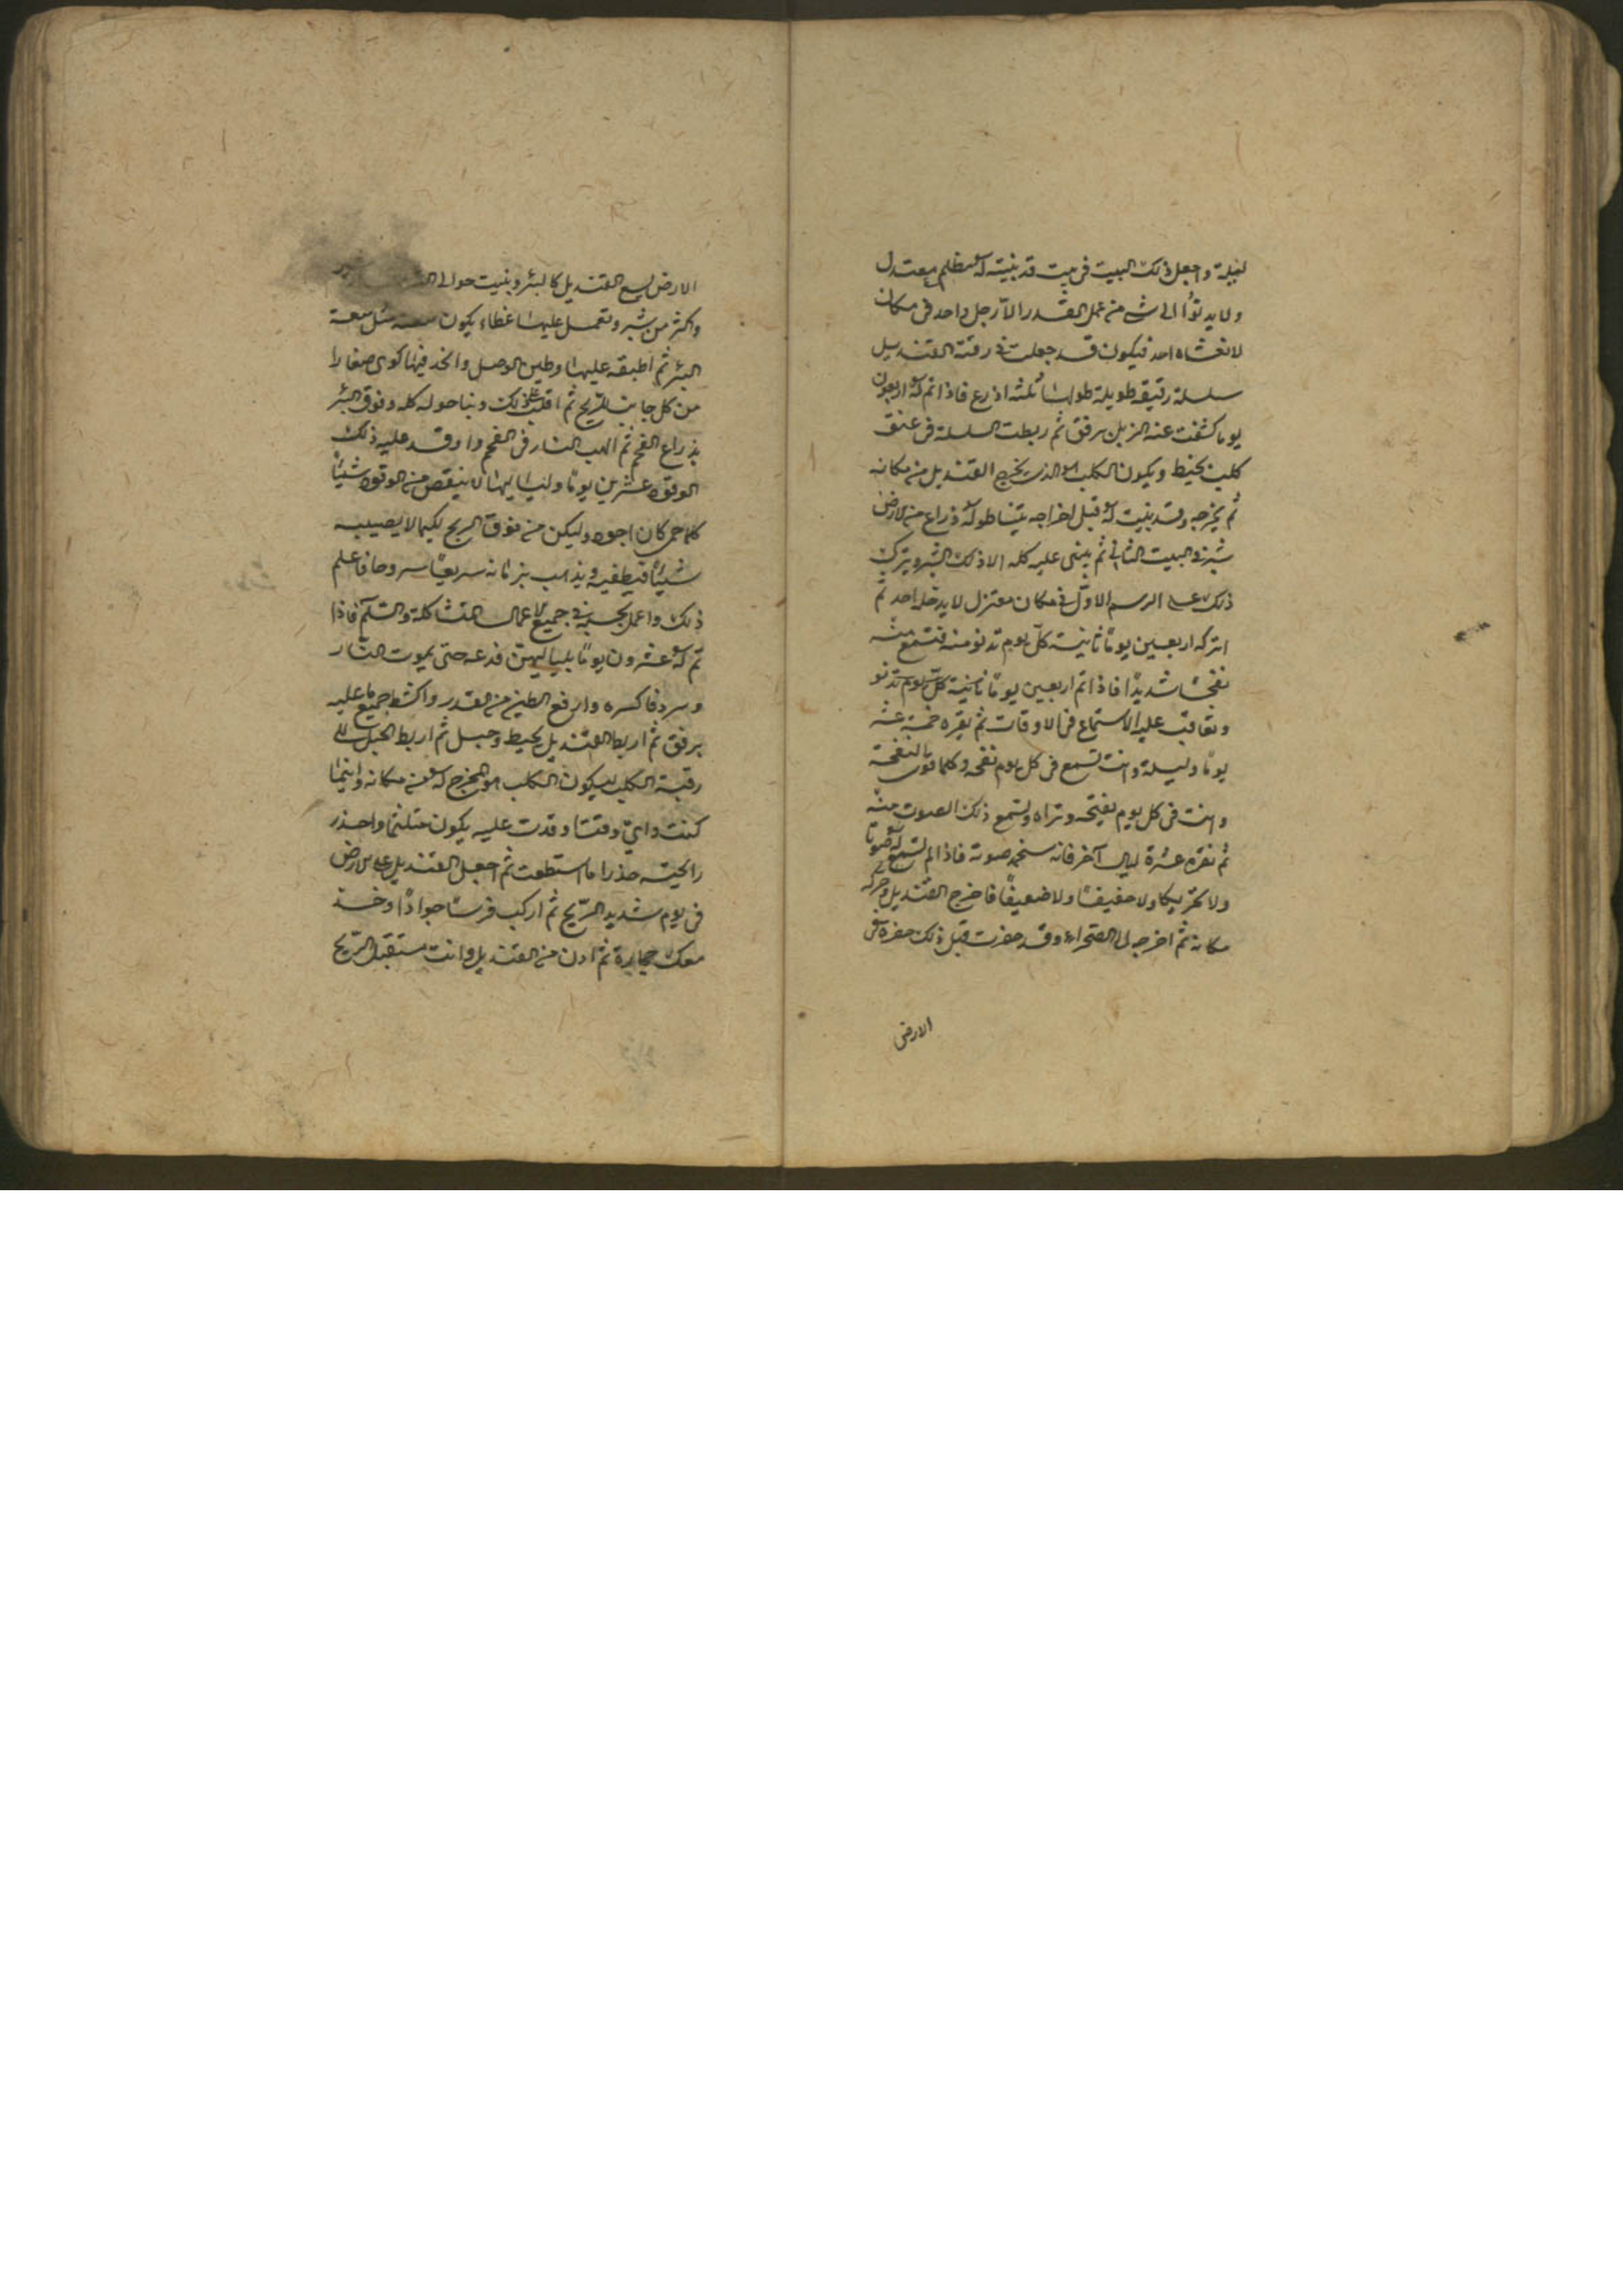 ليلة واجعل ذلك البيت فى بيت قد بنيته له مظلم معتدل
ولا يدنوا الى شى من عمل القدر الا رجل واحد فى مكان
لا تغشاه احد فيكون قد جعلت فى رقبة القنديل
سلسلة رقيقة طويلة طولها ثلثة اذرع فاذا تم له اربعون
يوما كشفت عنه الزبل برفق ثم ربطت السلسلة فى عنق
كلب بخيط ويكون الكلب هو الذى يخرج القنديل من مكانه
ثم يخرجه وقد بنيت له قبل اخراجه بيتا طوله ذراع من الارض
شبر فى البيت الثانى ثم يبنى عليه كله الا ذلك الشبر ويترك
ذلك على الرسم الاول فى مكان معتزل لا يدخله احد ثم
اتركه اربعين يوما ثانية كل يوم تدنو منه فتسمع منه
نفخا شديدا فاذا تم اربعين يوما ثانية كل يوم تدنو
وتعاقب عليه الاستماع فى الاوقات ثم يقره خمسة عشر
يوما وليلة وانت تسمع فى كل يوم نفخه وكلما قوى بالنفخة
وانت فى كل يوم تفتحه وتراه وتسمع ذلك الصوت منه
ثم تقره عشرة ليال آخر فانه سيخمد صوته فاذا لم تسمع له صوتا
ولا تحريكا ولا خفيفا ولا ضعيفا فاخرج القنديل وحركه
مكانه ثم اخرجه الى الصحراء وقد حفرت قبل ذلك حفرة فى
الارض
الارض يسع القنديل كالبئر وبنيت حوالى
واكثر من شبر وتعمل عليها غطاء يكون سعته مثل سعة
البئر ثم اطبقه عليها وطين الوصل واتخذ فيها كوى صغارا
من كل جانب للريح ثم اقلب على ذلك وبنا حوله كله وفوق البئر
بذراع الفحم ثم الهب النار فى الفحم واوقد عليه ذلك
الوقود عشرين يوما ولياليها لا ينقص من الوقود شيئا
كلما حمى كان اجود وليكن من فوق الريح لكيما لا يصيبه
شيئا فيطفيه ويذهب بزمانه سريعا سروحا فاعلم
ذلك واعمل بحسبه فى جميع الاعمال المتشاكلة والسلم فاذا
تم له عشرون يوما بلياليهن فدعه حتى يموت النار
وبرد فاكسره وارفع الطين من القدر واكشط جميع ما عليه
برفق ثم اربط القنديل بخيط وحبل ثم اربط الحبل الى
رقبة الكلب ليكون الكلب هو المخرج له من مكانه واينما
كنت واى وقتا وقدت عليه يكون متلثما واحذر
رائحته حذرا ما استطعت ثم اجعل القنديل على الارض
فى يوم شديد الريح ثم اركب فرسا جوادا وخذ
معك حجارة ثم ادن من القنديل وانت مستقبل الريح